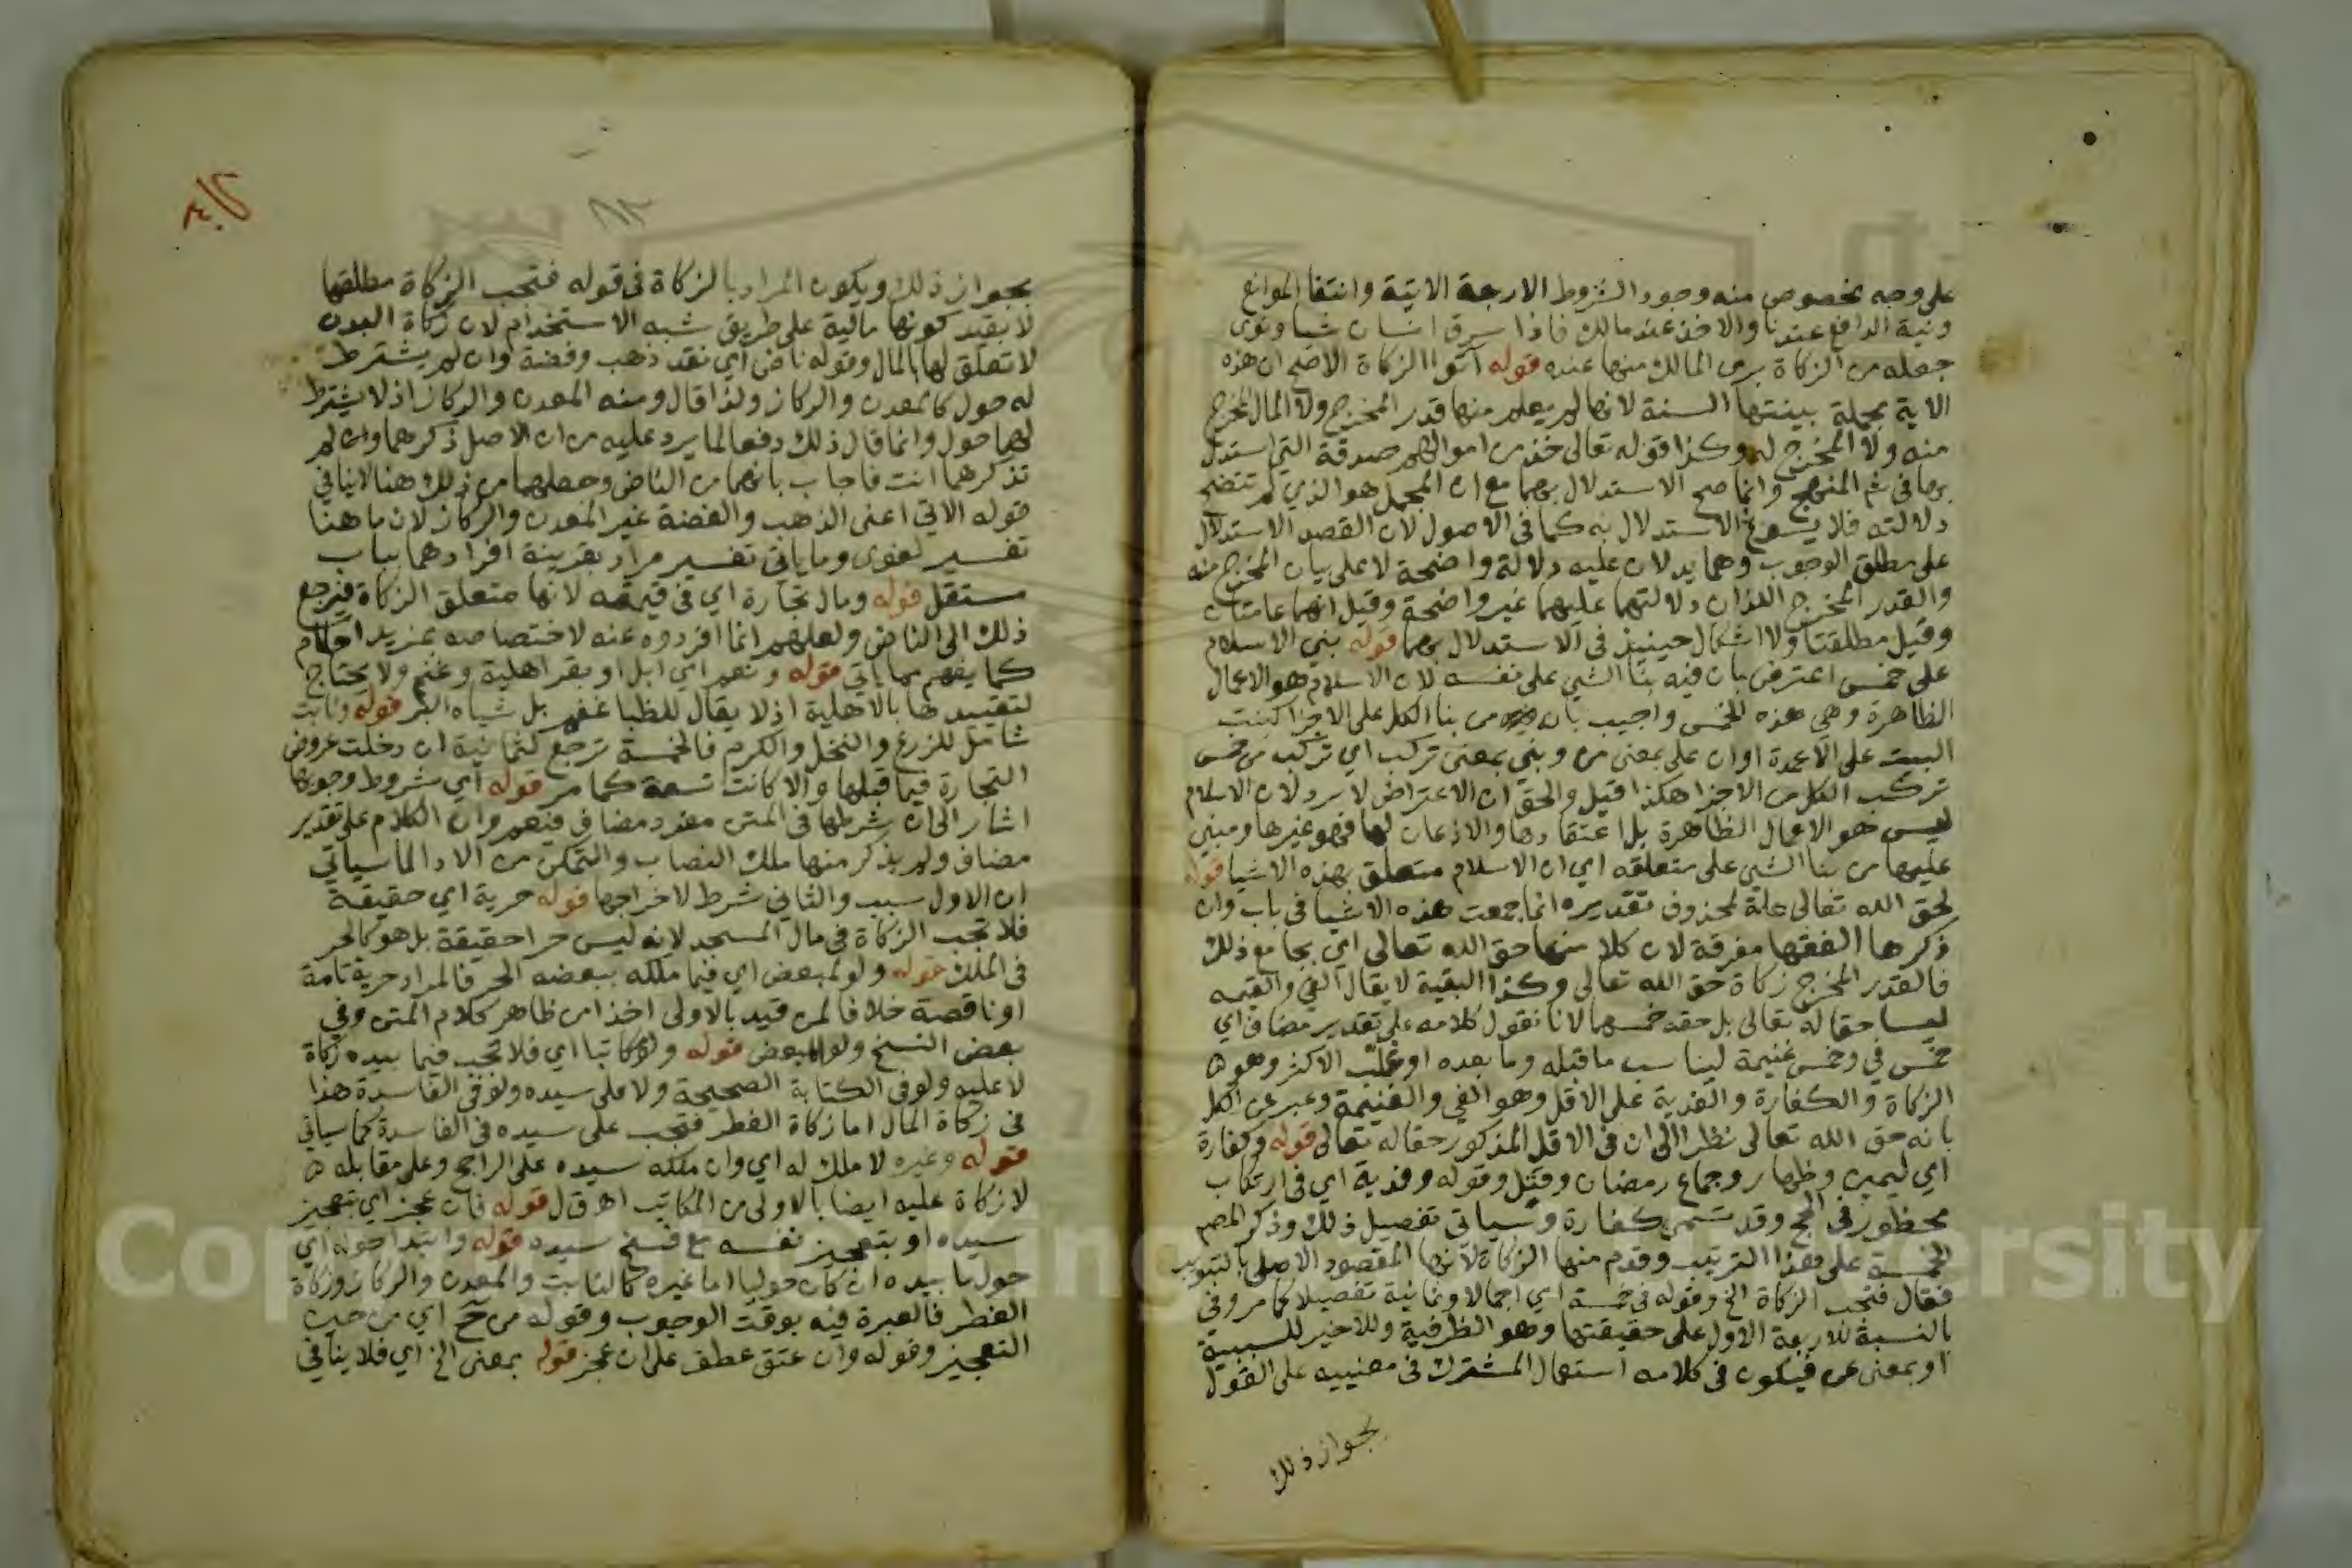 على وجه مخصوص منه وجود الشروط الاربعة الاتية وانتفا الموانع
ونية الدافع عندنا والاخذ عند مالك فاذا سرق انسان شيا ونوى
جعله من الزكاة برى المالك منها عنده قوله اتوا الزكاة الاصح ان هذه
الاية مجملة بينتها السنة لانها لم يعلم منها قدر المخرج ولا المال المخرج
منه ولا المخرج له وكذا قوله تعالى خذ من اموالهم صدقة التي استدل
بها في ثم المنهج وانما صح الاستدلال بهما مع ان المجمل هو الذي لم تتضح
دلالته فلا يسوغ الاستدلال به كما في الاصول لان القصد الاستدلال
على مطلق الوجوب وهما يدلان عليه دلالة واضحة لا على بيان المخرج منه
والقدر المخرج اللذان دلالتهما عليهما غير واضحة وقيل انهما عامتان
وقيل مطلقتا ولا اشكال حينيذ في الاستدلال بهما قوله بني الاسلام
على خمس اعترض بان فيه بنا الشي على نفسه لان الاسلام هو الاعمال
الظاهرة وهي هذه الخمس واجيب بان من بنا الكل على الاجزا كبنت
البيت على الاعمدة او ان على بمعنى من وبني بمعنى تركب اي تركب من خمس
تركب الكل من الاجزا هكذا قيل والحق ان الاعتراض لا يرد لان الاسلام
ليس هو الاعمال الظاهرة بل اعتقادها والاذعان لها فهو غيرها ومبني
عليها من بنا الشي على متعلقه اي ان الاسلام متعلق بهذه الاشيا قوله
لحق الله تعالى علة لمحذوف تقديره انما جمعت هذه الاشيا في باب وان
ذكرها الفقها مفرقة لان كلا منها حق الله تعالى اي بجامع ذلك
فالقدر المخرج زكاة حق الله تعالى وكذا البقية لا يقال الفي والغنيمه
ليسا حقا له تعالى بل حقه خمسهما لانا نقول كلامه على تقدير مضاف اي
خمس في وخمس غنيمة ليناسب ما قبله وما بعده او غلب الاكثر وهو
الزكاة والكفارة والفدية على الاقل وهو الفي والغنيمة وعبر عن الكل
بانه حق الله تعالى نظرا الى ان في الاقل المذكور حقا له تعالى قوله وكفارة
اي ليمين وظهار وجماع رمضان وقتل وقوله وفدية اي في ارتكاب
محظور في الحج وقد تسمى كفارة وسياتي تفصيل ذلك وذكر المص
الخمسة على هذا الترتيب وقدم منها الزكاة لانها المقصود الاصلي بالتبويب
فقال فتجب الزكاة الخ وقوله في خمسة اي اجمالا وثمانية تفصيلا كما مر وفي
بالنسبة للاربعة الاول على حقيقتها وهو الظرفية وللاخير للسببية
او بمعنى عن فيكون في كلامه استعمال المشترك في معنييه على القول
بجواز ذلك
بجواز ذلك ويكون المراد بالزكاة في قوله فتجب الزكاة مطلقها
لا بقيد كونها مالية على طريق شبه الاستخدام لان زكاة البدن
لا تعلق لها بالمال وقوله ناض اي نقد ذهب وفضة وان لم يشترط
له حول كالمعدن والركاز ولذا قال ومنه المعدن والركاز اذ لا يشترط
لهما حول وانما قال ذلك دفعا لما يرد عليه من ان الاصل ذكرهما وان لم
تذكرهما انت فاجاب بانهما من الناض وجعلهما من ذلك هنا لا ينافي
قوله الاتي اعني الذهب والفضة غير المعدن والركاز لان ما هنا
تفسير لغوى وما ياتي تفسير مراد بقرينة افرادهما بباب
مستقل قوله ومال تجارة اي في قيمته لانها متعلق الزكاة فيرجع
ذلك الى الناض ولعلهم انما افردوه عنه لاختصاصه بمزيد احكام
كما يفهم مما ياتي قوله ونعم اي ابل او بقر اهلية وغنم ولا يحتاج
لتقييدها بالاهلية اذ لا يقال للظبا غنم بل شياه البر قوله ونابت
شامل للزرع والنخل والكرم فالخمسة ترجع لثمانية ان دخلت عروض
التجارة فيما قبلها والا كانت تسعة كما مر قوله اي شروط وجوبها
اشار الى ان شرطها في المتن مفرد مضاف فيعم وان الكلام على تقدير
مضاف ولم يذكر منها ملك النصاب والتمكن من الادا لما سياتي
ان الاول سبب والثاني شرط لاخراجها قوله حرية اي حقيقة
فلا تجب الزكاة في مال المسجد لانه ليس حرا حقيقة بل هو كالحر
في الملك قوله ولو لمبعض اي فيما ملكه ببعضه الحر فالمراد حرية تامة
او ناقصة خلافا لمن قيد بالاولى اخذا من ظاهر كلام المتن وفي
بعض النسخ ولو المبعض قوله ولا مكاتبا اي فلا تجب فيما بيده زكاة
لا عليه ولو في الكتابة الصحيحة ولا على سيده ولو في الفاسدة هذا
في زكاة المال اما زكاة الفطر فتجب على سيده في الفاسدة كما سياتي
قوله وغيره لا ملك له اي وان ملكه سيده على الراجح وعلى مقابله
لا زكاة عليه ايضا بالاولى من المكاتب اهـ ق ل قوله فان عجز اي بتعجيز
سيده او بتعجيز نفسه مع فسخ سيده قوله وابتدا حوله اي
حول ما بيده ان كان حوليا اما غيره كالنابت والمعدن والركاز وزكاة
الفطر فالعبرة فيه بوقت الوجوب وقوله من ح اي من حين
التعجيز وقوله وان عتق عطف على ان عجز قوله بمعنى الخ اي فلا ينافي